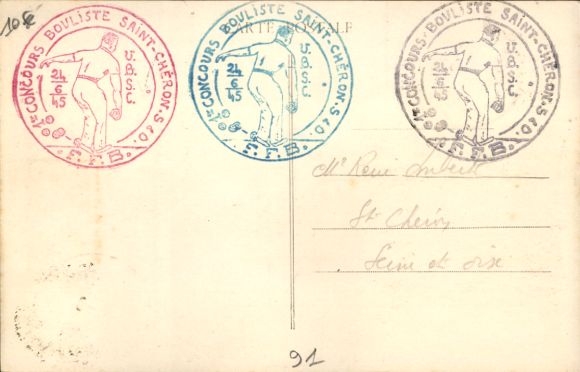 10€
CARTE POSTALE
1er CONCOURS BOULISTE SAINT-CHÉRON. S & O.
24/6/45
U.B.S.C.
F.F.B.
1er CONCOURS BOULISTE SAINT-CHÉRON. S & O.
24/6/45
U.B.S.C.
F.F.B.
1er CONCOURS BOULISTE SAINT-CHÉRON. S & O.
24/6/45
U.B.S.C.
F.F.B.
Mr René
St Chéron
Seine et Oise
91